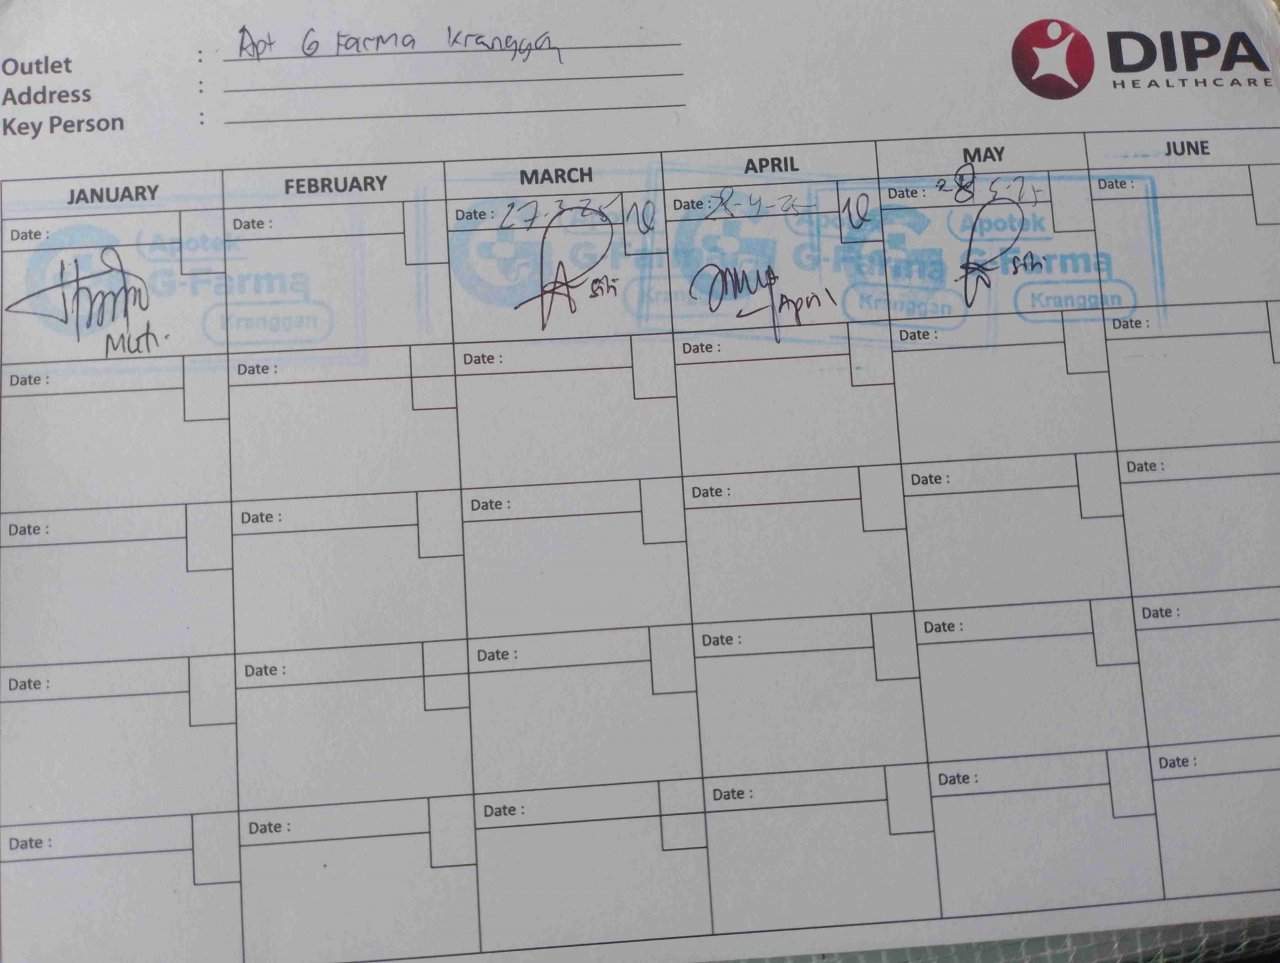 Outlet : Apt G Farma Kranggan
Address :
Key Person :
DIPA
HEALTHCARE
JANUARY FEBRUARY MARCH APRIL MAY JUNE
Date : Date : Date : 27-3-25 Date : 28-4-25 Date : 28 5-25 Date :
Apotek
G-Farma
Kranggan
Muti.
G-Farma
Siti
April
Kranggan
Apotek
G-Farma
Siti
Kranggan
Date : Date : Date : Date : Date : Date :
Date : Date : Date : Date : Date : Date :
Date : Date : Date : Date : Date : Date :
Date : Date : Date : Date : Date : Date :